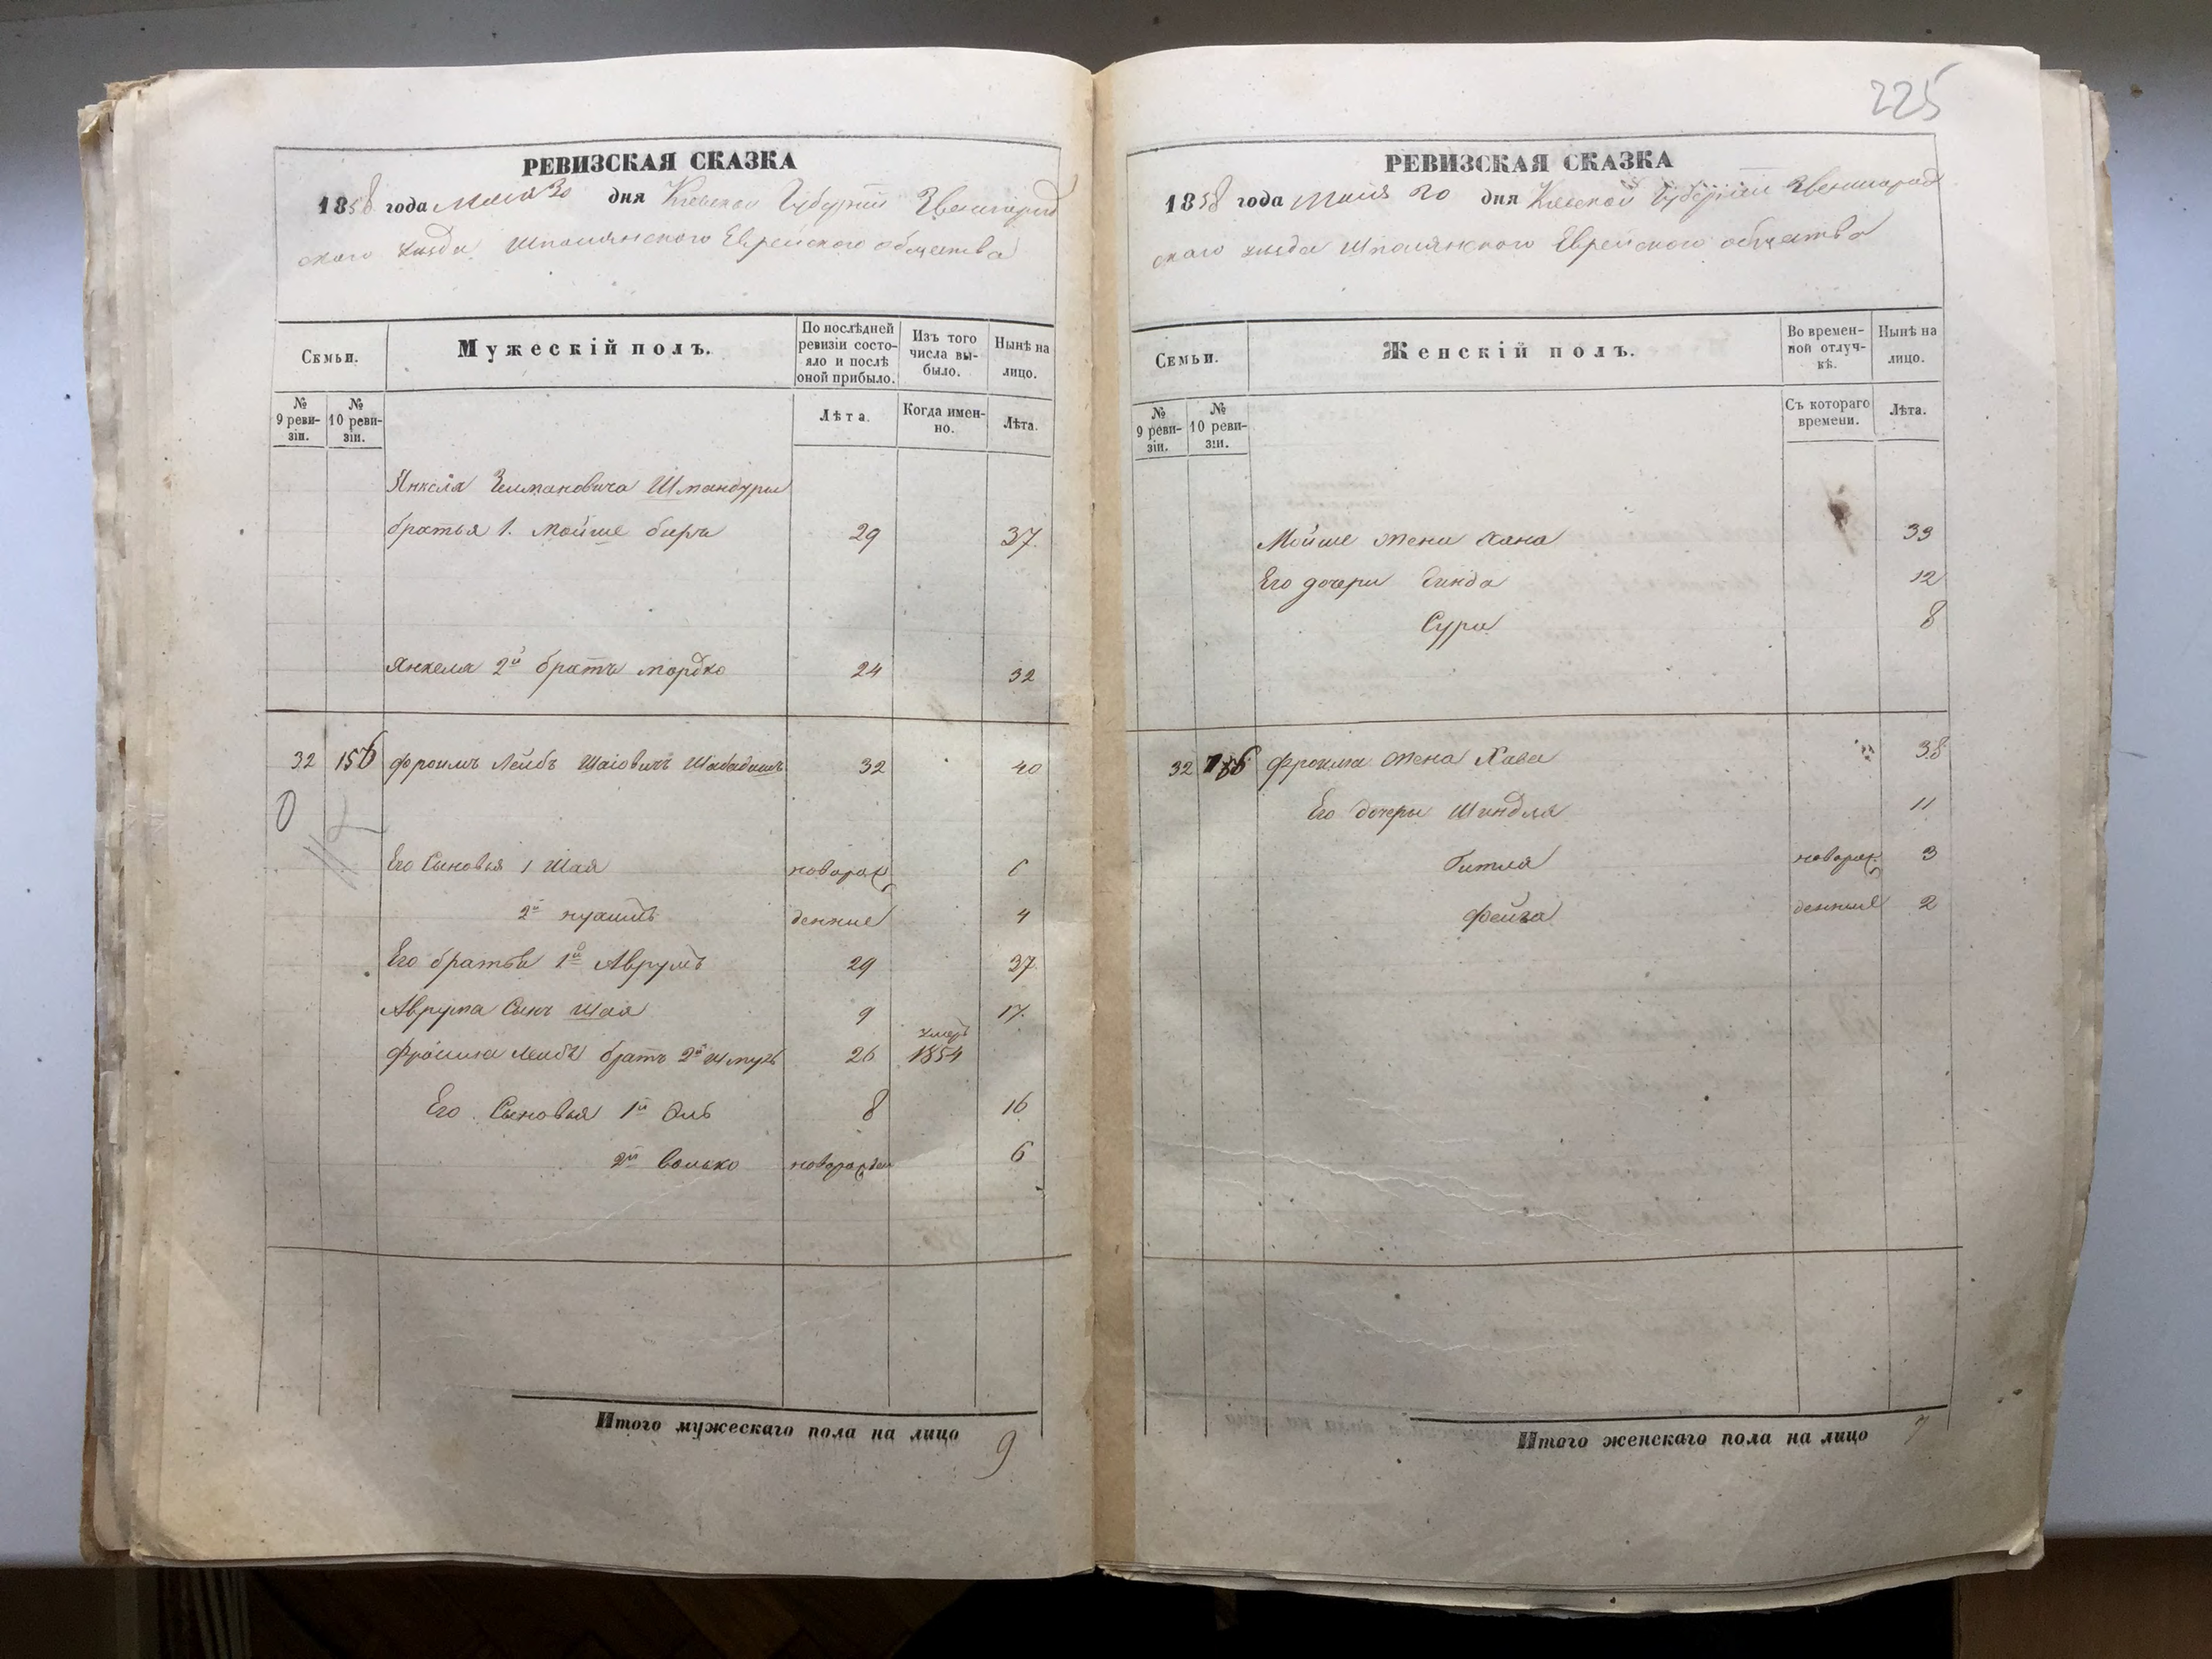 225
РЕВИЗСКАЯ СКАЗКА
1858 года Мая 30 дня Киевской Губерніи Звенигород
скаго уезда Шполянского Еврейского общества
Семьи.
Мужескій полъ.
По послѣдней ревизіи состояло и послѣ оной прибыло.
Изъ того числа выбыло.
Нынѣ на лицо.
№ 9 ревизіи.
№ 10 ревизіи.
Лѣта.
Когда именно.
Лѣта.
Янкеля Зельмановича
братья 1. Мойше беръ 29 37.
Янкеля 2й братъ Мордко 24 32
32 156 Фроимъ Лейбъ Шаіовичъ 32 40
0
Его Сыновья 1 Шая новорож 6
2й денные 4
Его братья 1й Аврумъ 29 37.
Аврума Сынъ Шая 9 17.
Фроима Лейбы братъ 2й Шмуль 26 умеръ 1854
Его Сыновья 1й 8 16
2й Волько новорожден 6
Итого мужескаго пола на лицо 9
РЕВИЗСКАЯ СКАЗКА
1858 года Мая 30 дня Киевской Губерніи Звенигород
скаго уезда Шполянского Еврейского общества
Семьи.
Женскій полъ.
Во временной отлучкѣ.
Нынѣ на лицо.
№ 9 ревизіи.
№ 10 ревизіи.
Съ котораго времени.
Лѣта.
Мойше жена Хана 33
Его дочери 12
Сура 8
32 156 Фроима жена Хава 38
Его дочеры Шиндля 11
новорож 3
Фейга денные 2
Итого женскаго пола на лицо 7